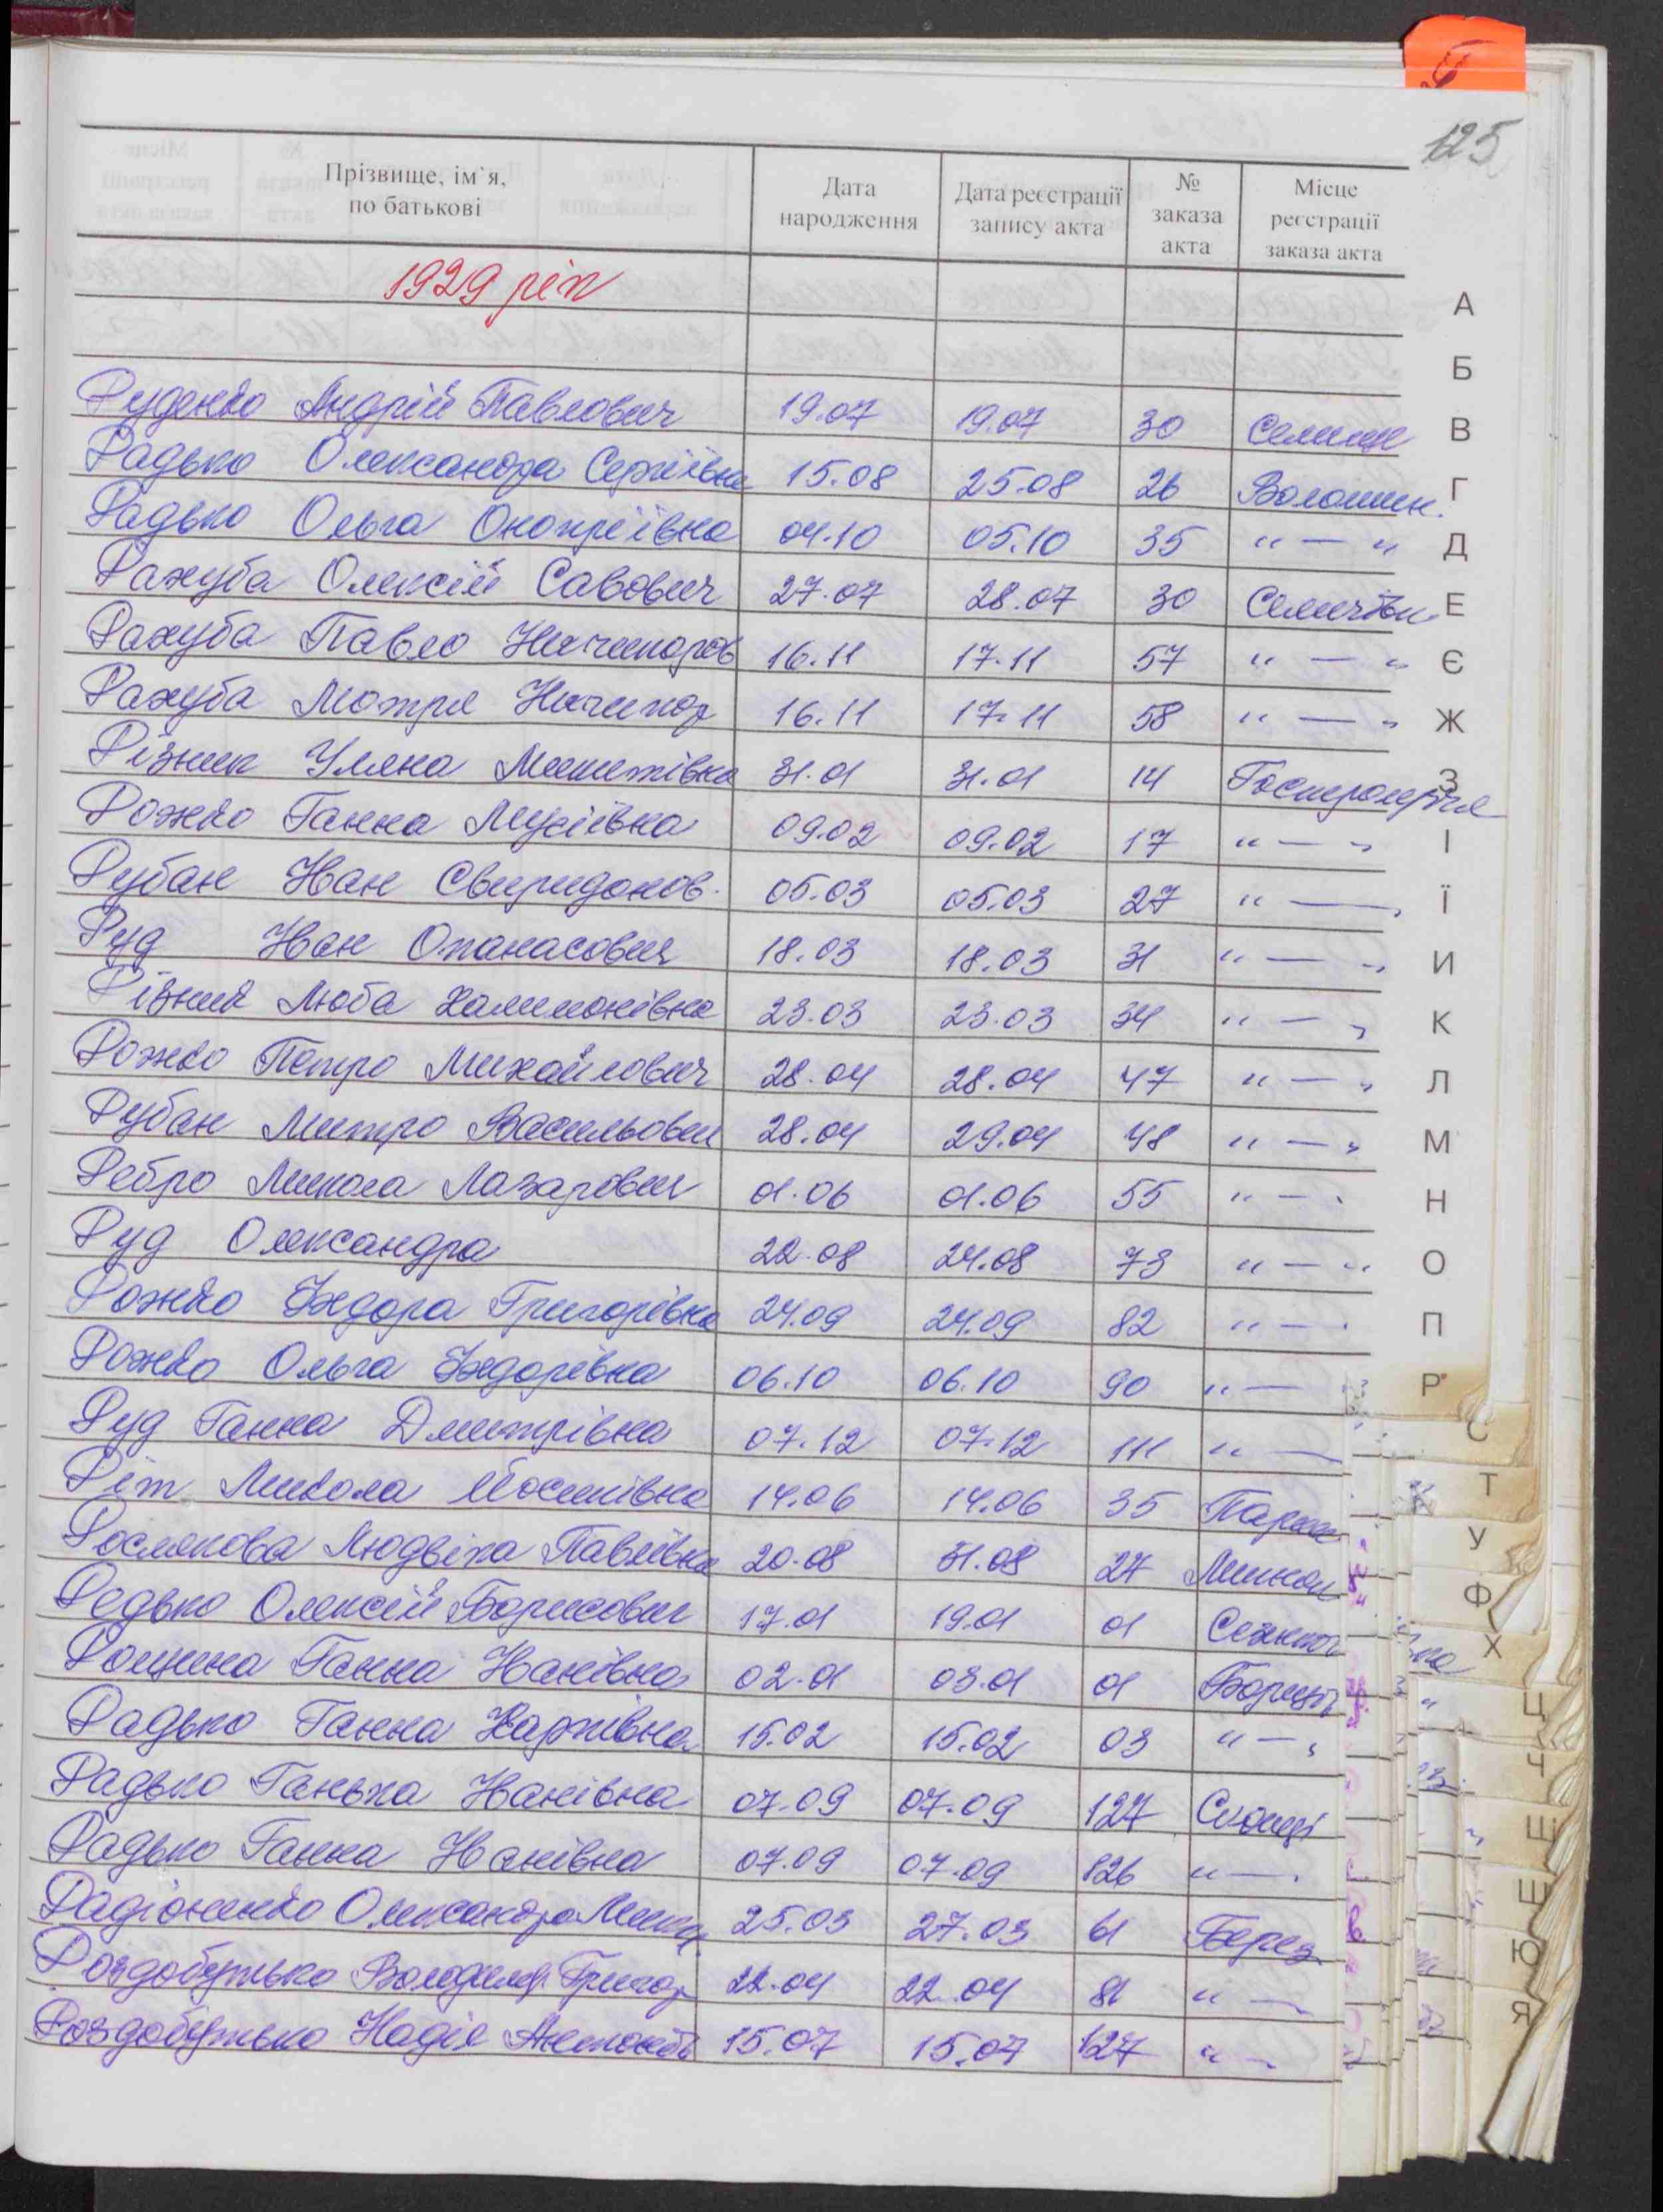 125
Прізвище, ім'я, по батькові | Дата народження | Дата реєстрації запису акта | № заказа акта | Місце реєстрації заказа акта
1929 рік
Руденко Андрій Павлович 19.07 19.07 30 Селище
Радько Олександра Сергіївна 15.08 25.08 26 Волошин.
Радько Ольга Онопріївна 04.10 05.10 35 " — "
Рахуба Олексій Савович 27.07 28.07 30
Рахуба Павло Ничипоров 16.11 17.11 57 " — "
Рахуба Мотря Ничипор 16.11 17.11 58 " — "
Різник Уляна Микитівна 31.01 31.01 14
Рожко Ганна Мусіївна 09.02 09.02 17 " — "
Рубан Іван Свиридонов. 05.03 05.03 27 " — "
Руд Іван Опанасович 18.03 18.03 31 " — "
Різник Люба Халимонівна 23.03 23.03 34 " — "
Рожко Петро Михайлович 28.04 28.04 47 " — "
Рубан Митро Васильович 28.04 29.04 48 " — "
Ребро Микола Лазарович 01.06 01.06 55 " — "
Руд Олександра 22.08 24.08 73 " — "
Рожко Федора Григорівна 24.09 24.09 82 " — "
Рожко Ольга Федорівна 06.10 06.10 90 " —
Руд Ганна Дмитрівна 07.12 07.12 111 " —
Ріт Микола Йосипівна 14.06 14.06 35
Рослякова Людвіка Павлівна 20.08 31.08 27
Редько Олексій Борисович 17.01 19.01 01
Рощина Ганна Іванівна 02.01 03.01 01
Радько Ганна Карпівна 15.02 15.02 03 " — "
Радько Ганька Іванівна 07.09 07.09 127
Радько Ганна Іванівна 07.09 07.09 126 " — "
Радіоненко Олександра 25.03 27.03 61 Берез.
Роздобудько Володимир Григор 22.04 22.04 81 " —
Роздобудько Надія Антонів 15.07 15.07 127 " —
А
Б
В
Г
Д
Е
Є
Ж
З
І
Ї
И
К
Л
М
Н
О
П
Р
С
Т
У
Ф
Х
Ц
Ч
Щ
Ш
Ю
Я